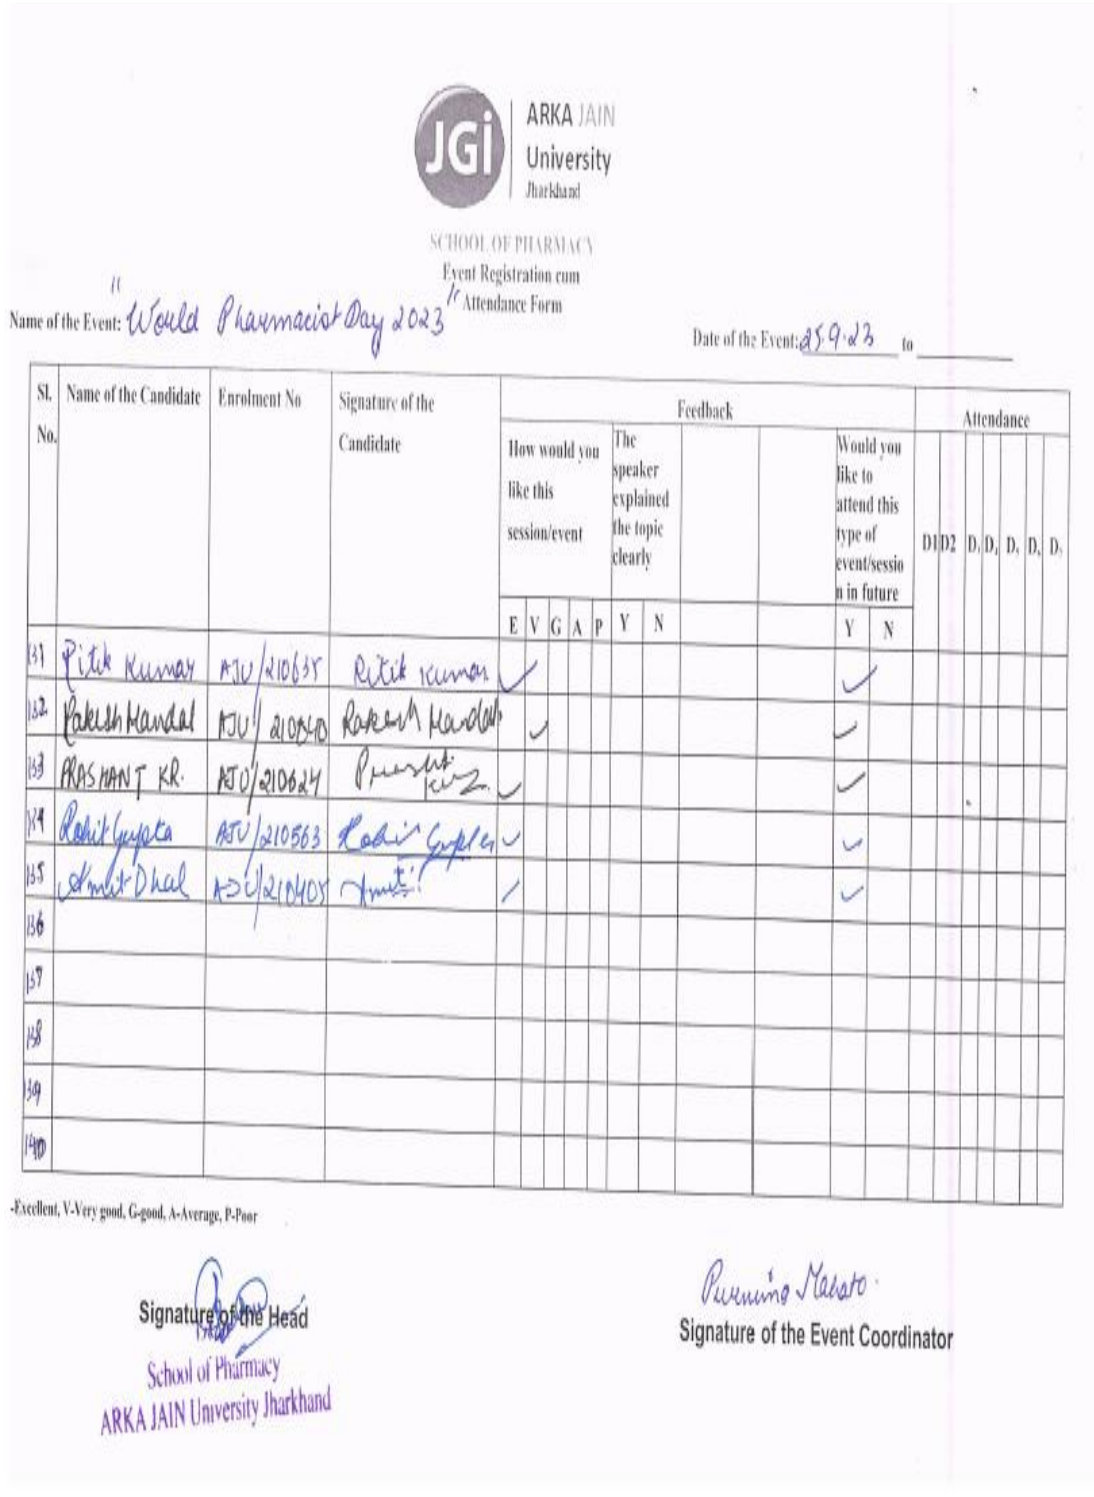 JGi
ARKA JAIN
University
Jharkhand
SCHOOL OF PHARMACY
Event Registration cum
Attendance Form
Name of the Event: "World Pharmacist Day 2023"
Date of the Event: 25.9.23 to
Sl. No. Name of the Candidate Enrolment No Signature of the Candidate Feedback Attendance
How would you like this session/event
The speaker explained the topic clearly
Would you like to attend this type of event/session in future
D1 D2 D. D. D. D. D.
E V G A P Y N Y N
131 Ritik Kumar AJU/210635 Ritik Kumar ✓ ✓
132 Rakesh Mandal AJU/ Rakesh Mandal ✓ ✓
133 PRASHANT KR. AJU/210624 ✓ ✓
134 Rohit Gupta AJU/210563 Rohit Gupta ✓ ✓
135 Amit Dhal AJU/210405 Amit ✓ ✓
136
137
138
139
140
-Excellent, V-Very good, G-good, A-Average, P-Poor
Signature of the Head
School of Pharmacy
ARKA JAIN University Jharkhand
Mahato
Signature of the Event Coordinator